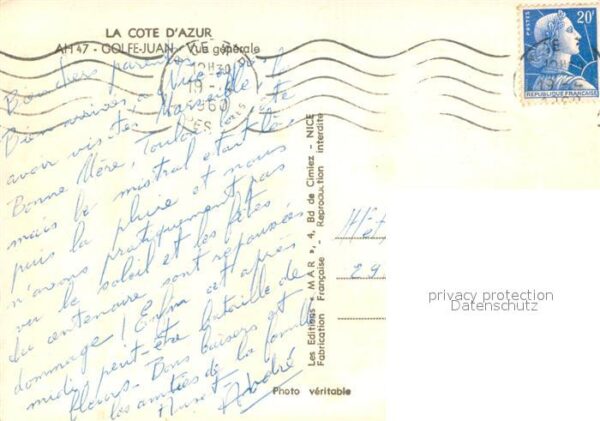 LA COTE D'AZUR
AH 47 - GOLFE-JUAN - Vue générale
Bons chers parents
Bien arrivés à Nice
avoir visité Marseille,
Bonne Mère, Toulon
mais le mistral était là
puis la pluie et nous
n'avons pratiquement pas
vu le soleil et les fêtes
du centenaire sont repoussées
dommage ! Enfin cet après
midi peut-être bataille de
fleurs - Bons baisers et
les amitiés de la famille
André
POSTES
20F
REPUBLIQUE FRANÇAISE
12H30
19 -
1960
Les Editions « MAR », 4, Bd de Cimiez - NICE
Fabrication Française - Reproduction interdite
Photo véritable
privacy protection
Datenschutz